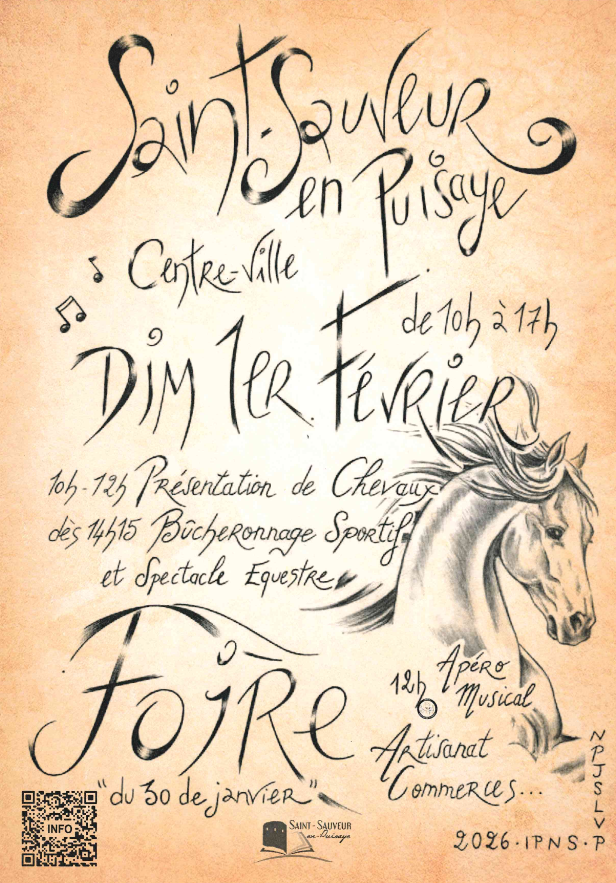 Saint-Sauveur
en Puisaye
Centre-Ville
de 10h à 17h
Dim 1er Février
10h-12h Présentation de Chevaux
dès 14h15 Bûcheronnage Sportif
et Spectacle Equestre
Foire
"du 30 de janvier"
12h Apéro
Musical
Artisanat
Commerces...
INFO
SAINT-SAUVEUR
en-Puisaye
2026·IPNS·P
NPJSLVP